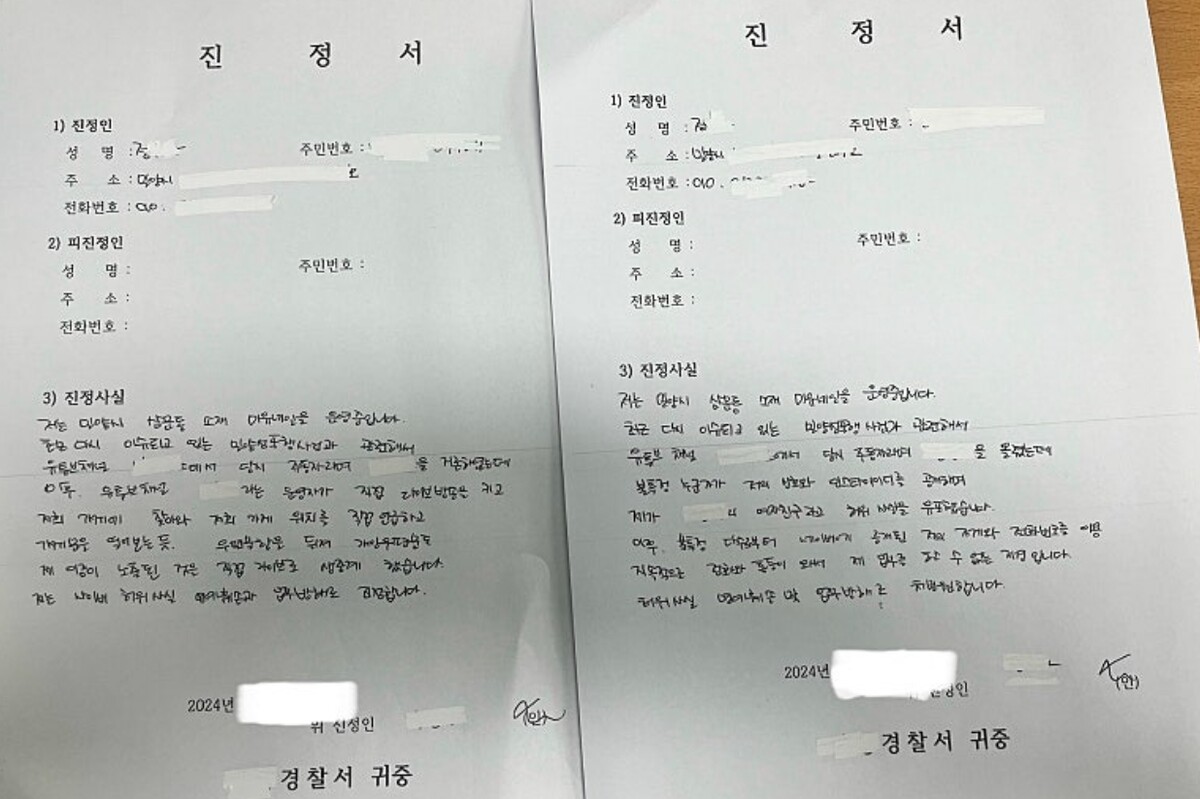 진 정 서
1) 진정인
성 명 : 정
주민번호 :
주 소 : 밀양시
전화번호 : 010.
2) 피진정인
성 명 :
주민번호 :
주 소 :
전화번호 :
3) 진정사실
저는 밀양시 삼문동 소재 미유네일을 운영중입니다.
최근 다시 이슈되고 있는 밀양성폭행사건과 관련해서
유튜브채널 에서 당시 주동자라며 을 거론하였는데
이후. 유튜브채널 라는 운영자가 직접 라이브방송을 키고
저희 가게에 찾아와 저희 가게 위치를 직접 언급하고
가게문을 열어보는 듯. 우편물함을 뒤져 가안우편물도
제 이름이 노출된 것은 직접 라이브로 생중계 했습니다.
저는 사이버 허위사실 명예훼손과 업무방해로 진정합니다.
2024년
위 진정인
(인)
경찰서 귀중
진 정 서
1) 진정인
성 명 : 정
주민번호 :
주 소 : 밀양시
전화번호 : 010.
2) 피진정인
성 명 :
주민번호 :
주 소 :
전화번호 :
3) 진정사실
저는 밀양시 삼문동 소재 미유네일을 운영중입니다.
최근 다시 이슈되고 있는 밀양성폭행사건과 관련해서
유튜브 채널 에서 당시 주동자라며 을 올렸는데
불특정 누군가가 저의 번호와 인스타아이디를 공개하며
제가 의 여자친구라고 허위 사실을 유포했습니다.
이후. 불특정 다수로부터 네이버에 등재된 저의 가게와 전화번호를 이용
지속적으로 전화와 톡등이 와서 제 업무를 할 수 없는 지경입니다.
허위사실 명예훼손 및 업무방해로 처벌원합니다.
2024년
위 진정인
(인)
경찰서 귀중